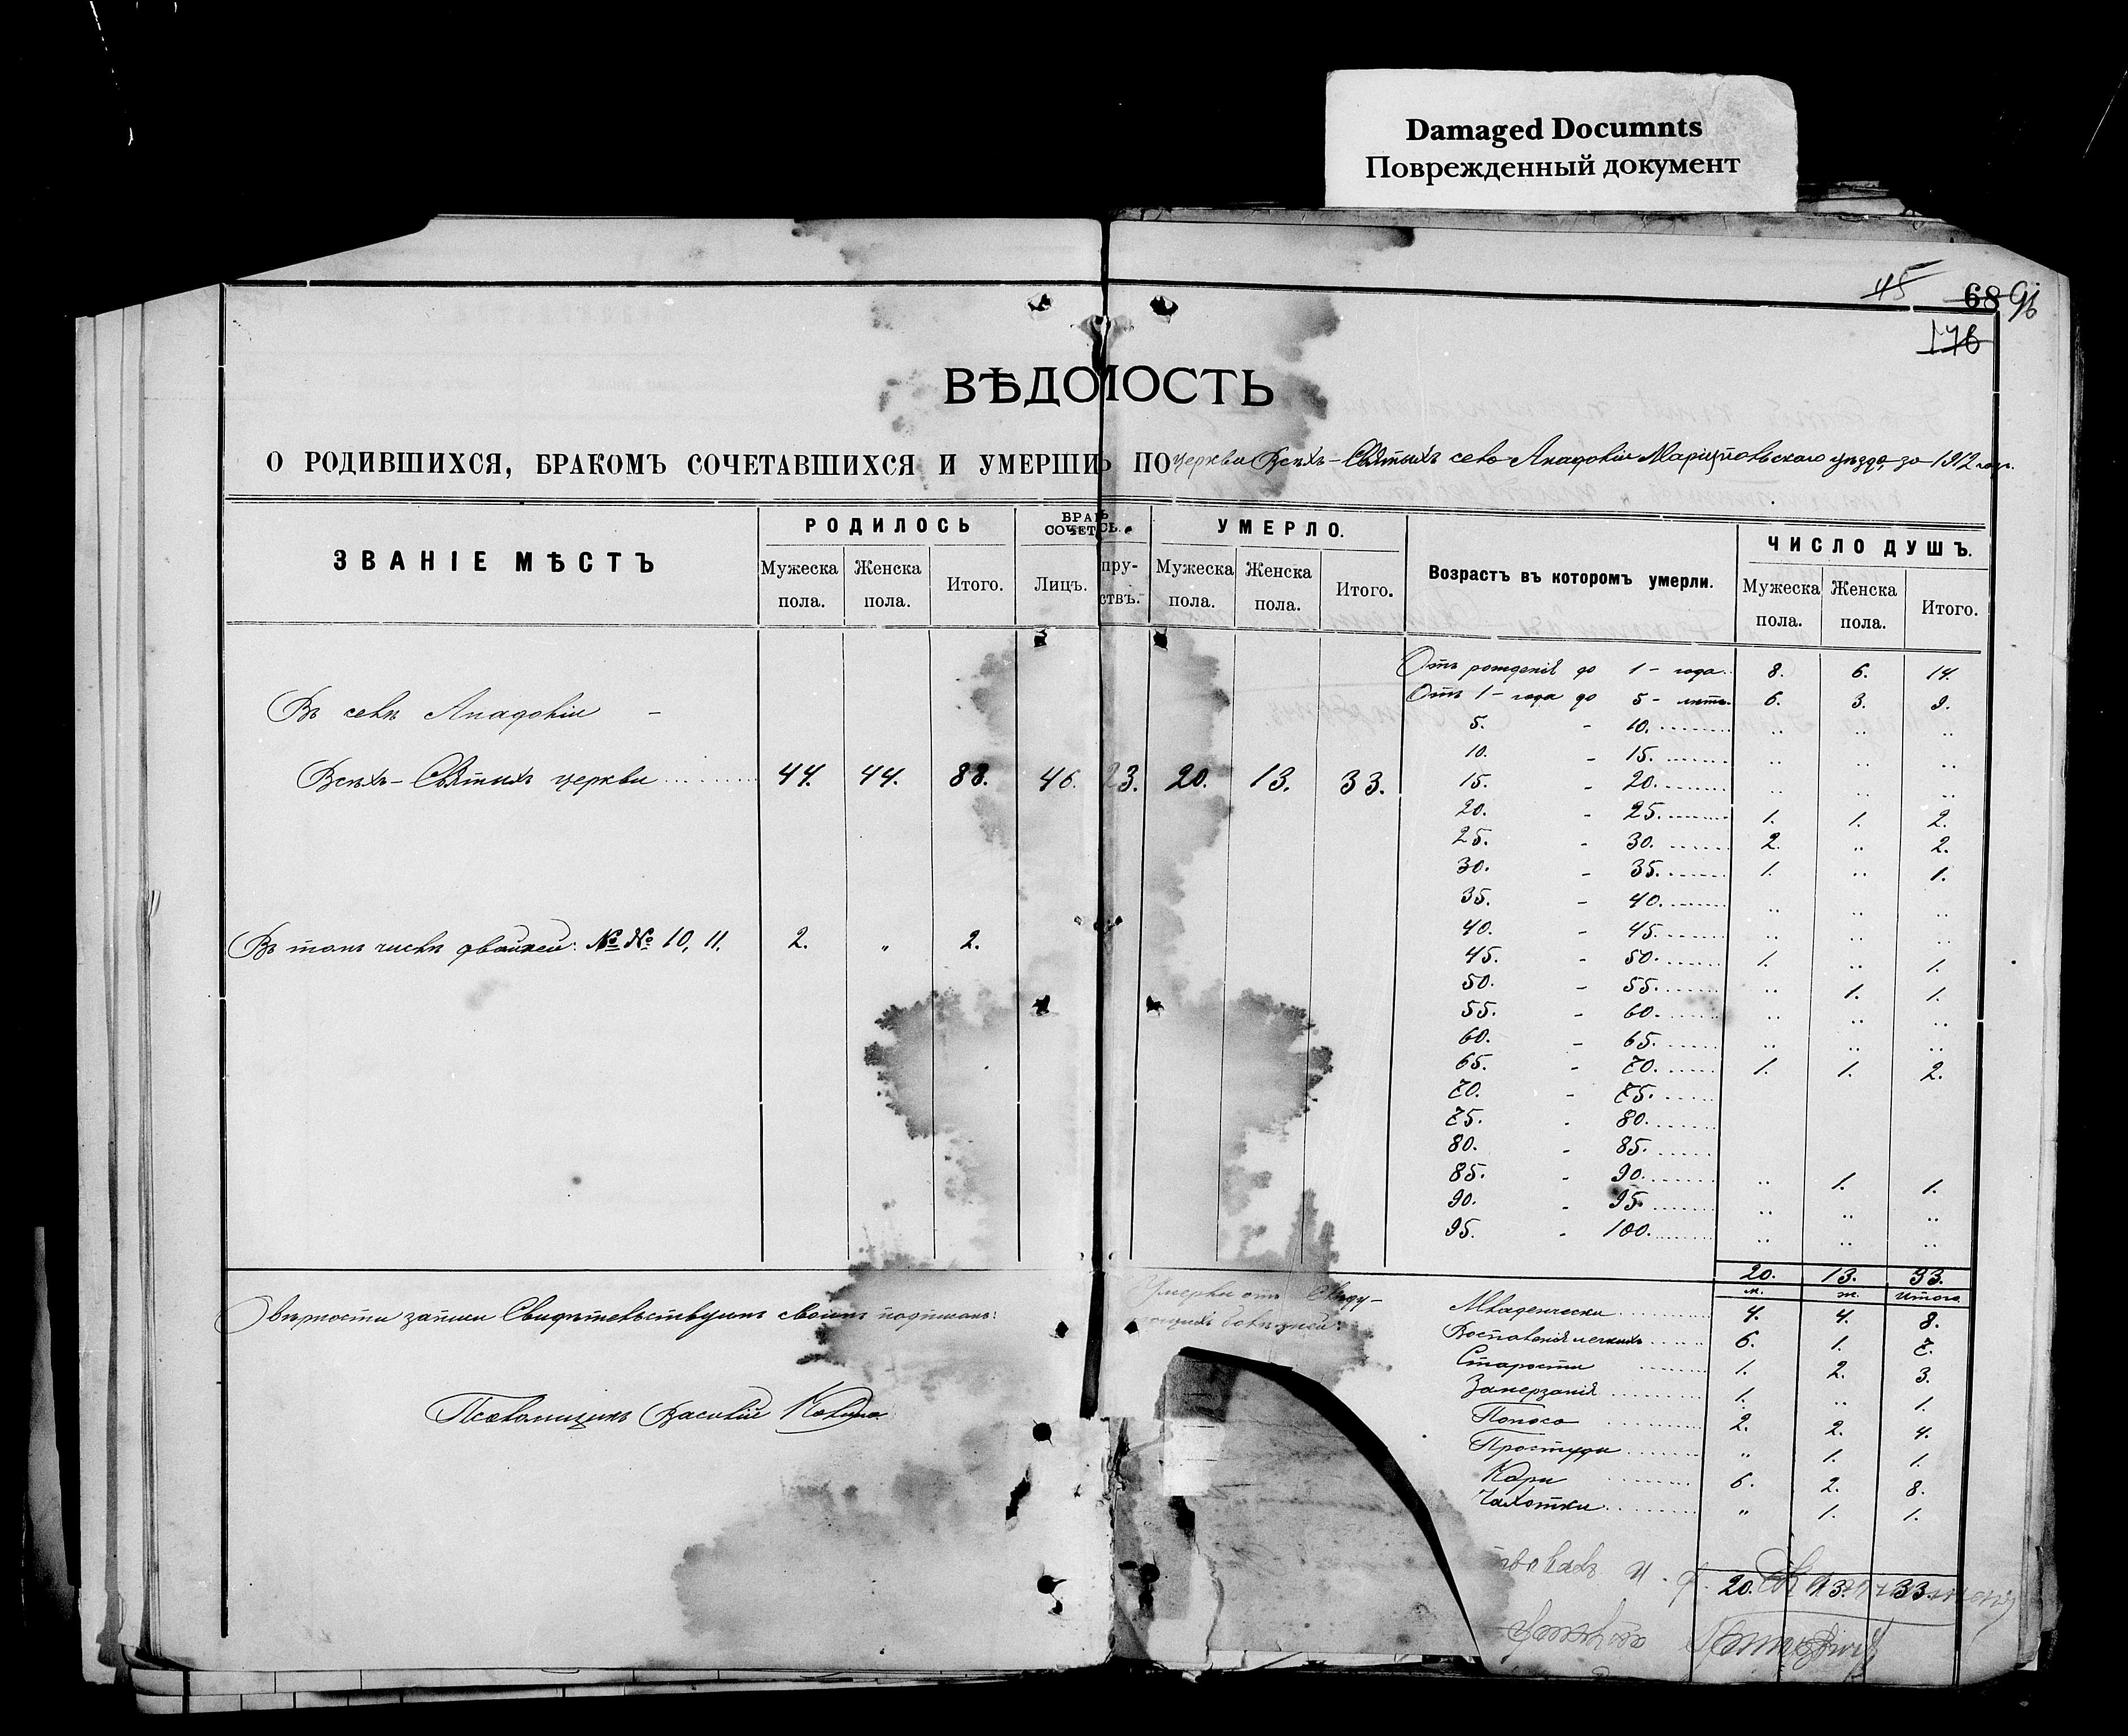 Damaged Documnts
Поврежденный документ
45
68 96
176
ВѢДОМОСТЬ
О РОДИВШИХСЯ, БРАКОМЪ СОЧЕТАВШИХСЯ И УМЕРШИ ПО церкви Всѣхъ-Святыхъ села Анадоліи Маріупольскаго уѣзда, за 1912 годъ.
ЗВАНІЕ МѢСТЪ РОДИЛОСЬ БРАК СОЧЕТ СЬ. УМЕРЛО. Возрастъ въ которомъ умерли. ЧИСЛО ДУШЪ.
Мужеска пола. Женска пола. Итого. Лицъ. пру-ствъ. Мужеска пола. Женска пола. Итого. Мужеска пола. Женска пола. Итого.
Отъ рожденія до 1 - года 8. 6. 14.
Отъ 1 - года до 5 - лѣтъ 6. 3. 9.
Въ селѣ Анадоліи -
5. - 10. .. .. ..
10. - 15. .. .. ..
Всѣхъ-Святыхъ церкви 44. 44. 88. 46. 23. 20. 13. 33.
15. - 20. .. .. ..
20. - 25. 1. 1. 2.
25. - 30. 2. .. 2.
30. - 35. 1. .. 1.
35. - 40. .. .. ..
40. - 45. .. .. ..
Въ томъ числѣ двойней: №№ 10, 11. 2. „ 2.
45. - 50. 1. .. 1.
50. - 55. .. 1. 1.
55. - 60. .. .. ..
60. - 65. .. .. ..
65. - 70. 1. 1. 2.
70. - 75.
75. - 80.
80. - 85.
85. - 90. .. 1. 1.
90. - 95. .. .. ..
95. - 100. .. .. ..
20. 13. 33.
м. ж. итого
О вѣрности записи Свидѣтельствуемъ своимъ подписомъ:
Псаломщикъ Василій
Умерли отъ слѣду-
ющихъ болѣзней:
Младенчески 4. 4. 8.
Воспаленія легкихъ 6. 1. 7.
Старости 1. 2. 3.
Замерзанія 1. .. 1.
Поноса 2. 2. 4.
Простуды „ 1. 1.
Кори 6. 2. 8.
Чахотки „ 1. 1.
20. 13. 33.